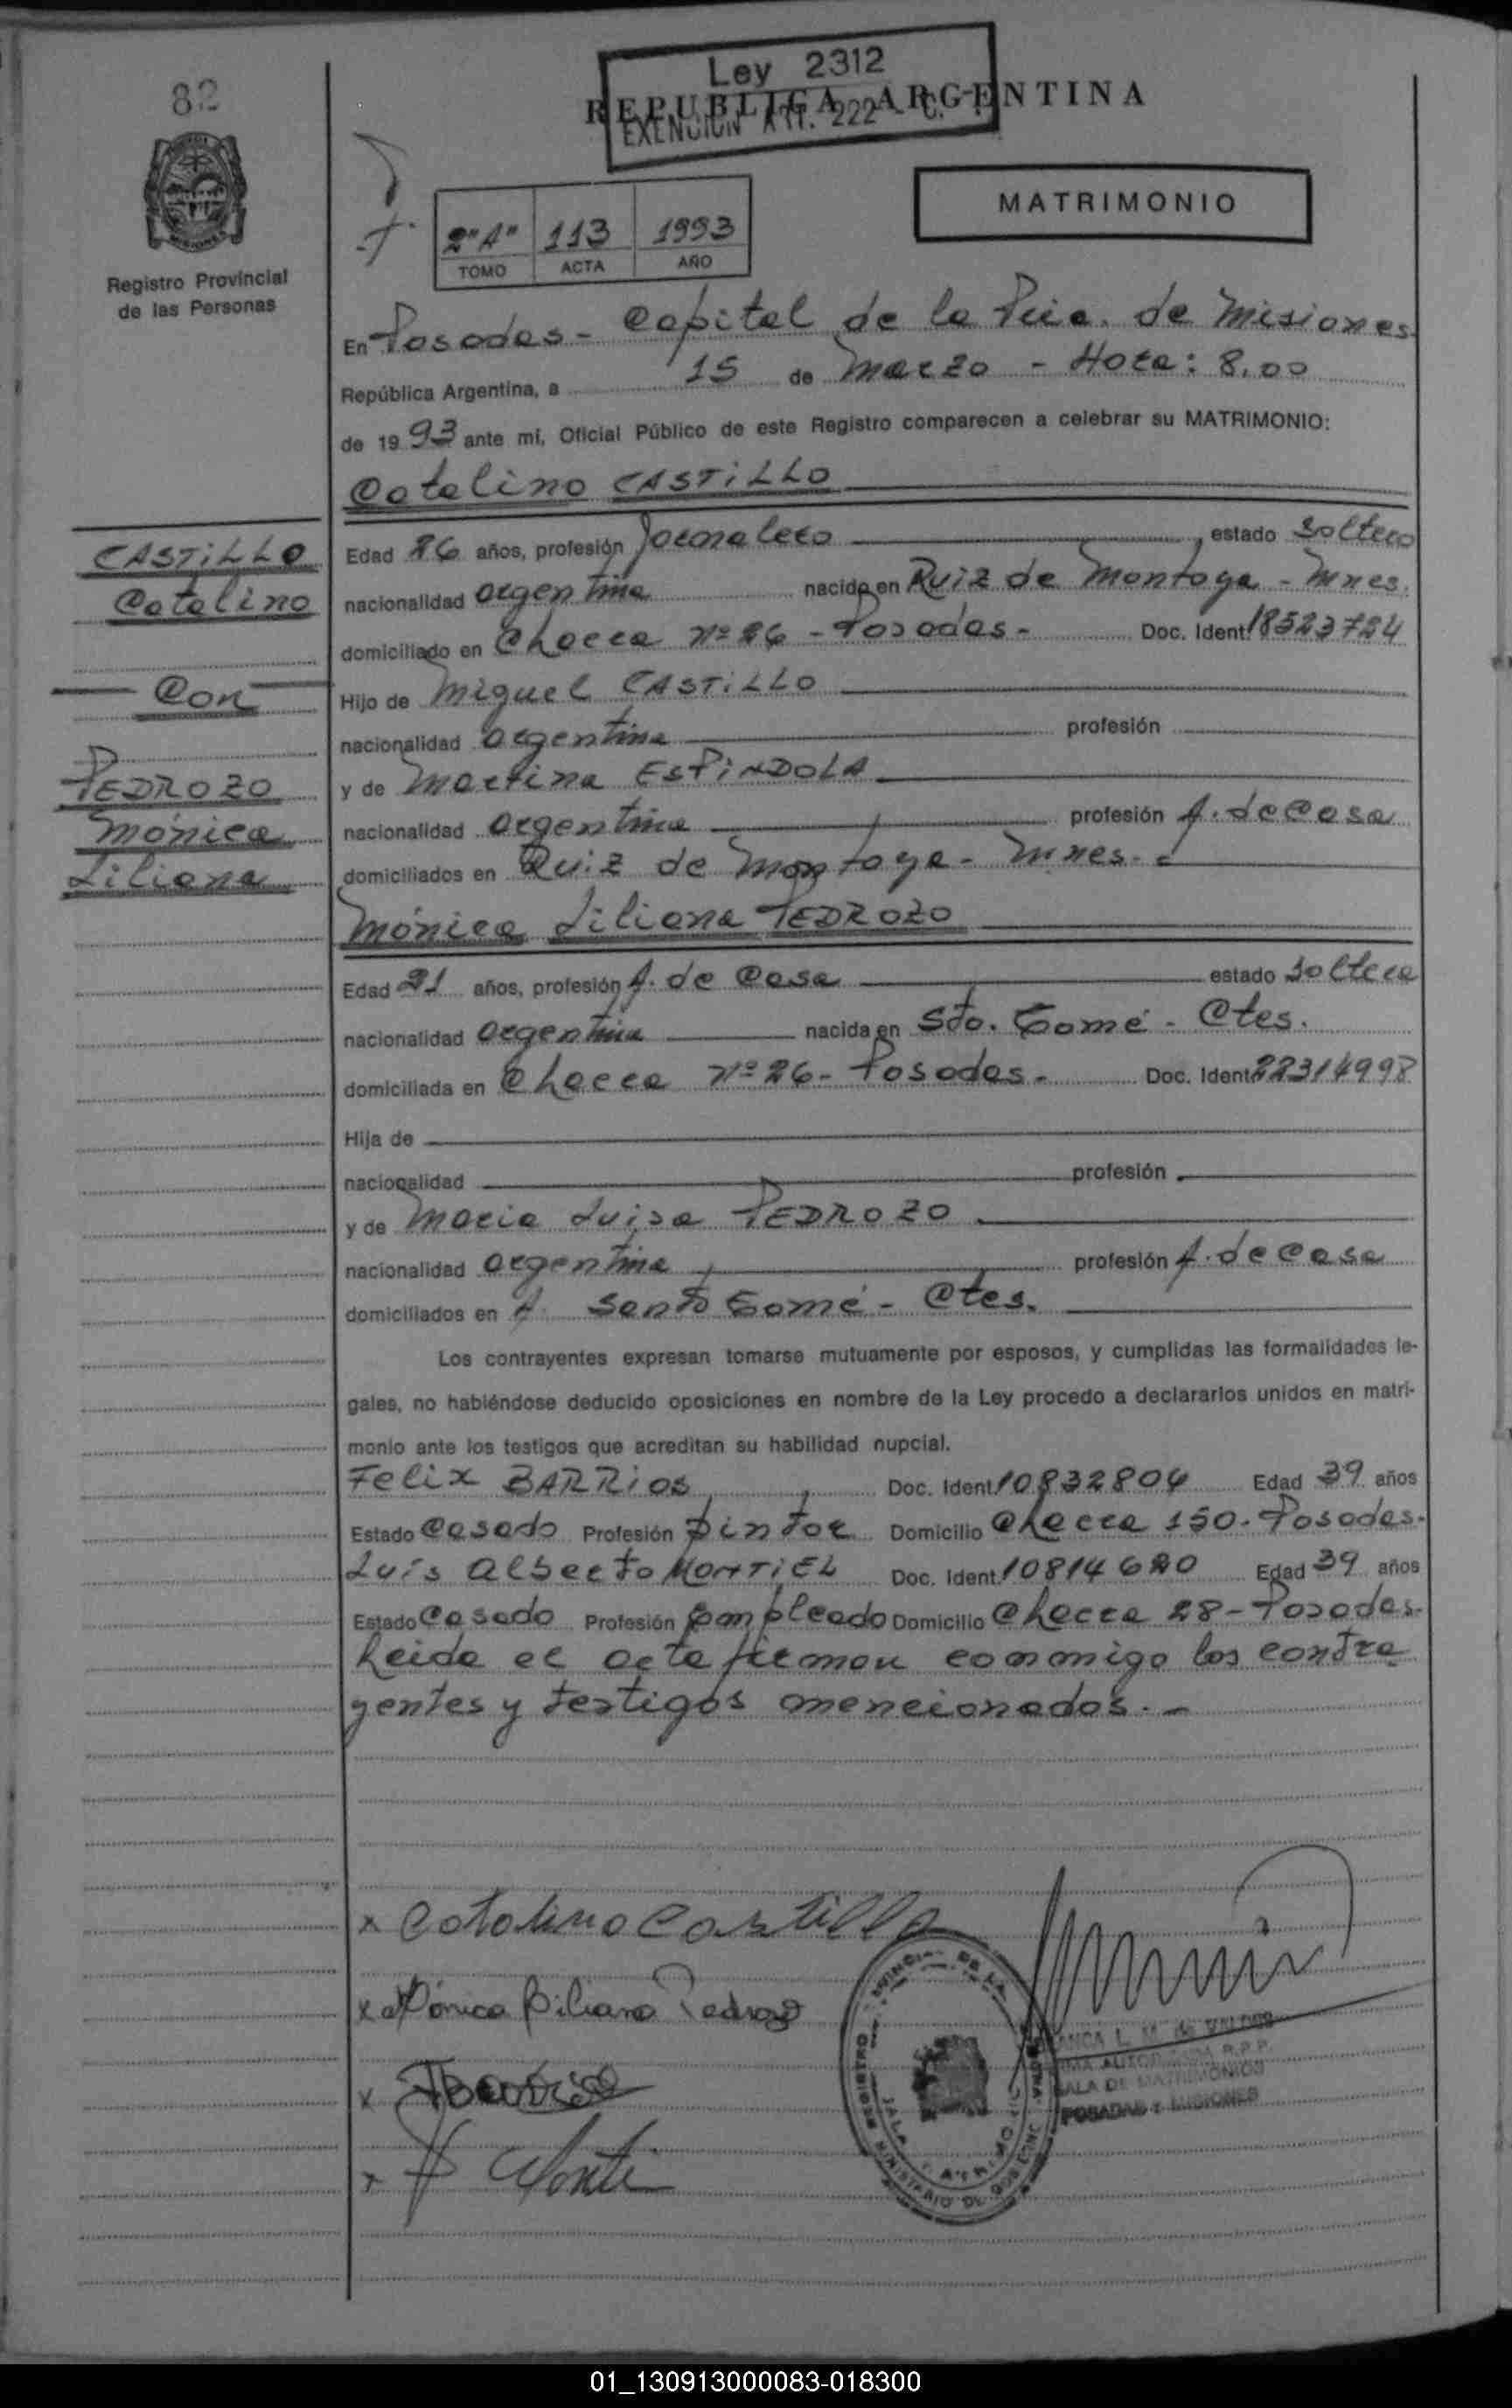 82
Ley 2312
EXENCION ART. 222 - C.
REPUBLICA ARGENTINA
MATRIMONIO
2"A" 113 1993
TOMO ACTA AÑO
Registro Provincial
de las Personas
En Posadas - Capital de la Pcia. de Misiones
República Argentina, a 15 de Marzo - Hora: 8,00
de 1993 ante mi, Oficial Público de este Registro comparecen a celebrar su MATRIMONIO:
Catalino CASTILLO
CASTILLO
Catalino
Con
PEDROZO
Mónica
Liliana
Edad 26 años, profesión Jornalero estado soltero
nacionalidad argentina nacido en Ruiz de Montoya - Mnes.
domiciliado en Chacra Nº 26 - Posadas - Doc. Ident. 18523724
Hijo de Miguel CASTILLO
nacionalidad argentina profesión
y de Martina ESPINDOLA
nacionalidad argentina profesión A. de Casa
domiciliados en Ruiz de Montoya - Mnes. -
Mónica Liliana PEDROZO
Edad 21 años, profesión A. de Casa estado soltera
nacionalidad argentina nacida en Sto. Tomé - Ctes.
domiciliada en Chacra Nº 26 - Posadas - Doc. Ident. 22314998
Hija de
nacionalidad profesión
y de Maria Luisa PEDROZO
nacionalidad argentina profesión A. de Casa
domiciliados en Santo Tomé - Ctes.
Los contrayentes expresan tomarse mutuamente por esposos, y cumplidas las formalidades le-
gales, no habiéndose deducido oposiciones en nombre de la Ley procedo a declararlos unidos en matri-
monio ante los testigos que acreditan su habilidad nupcial.
Felix BARRIOS Doc. Ident. 10832804 Edad 39 años
Estado Casado Profesión pintor Domicilio Chacra 150 - Posadas -
Luis Alberto MONTIEL Doc. Ident. 10814620 Edad 39 años
Estado Casado Profesión Empleado Domicilio Chacra 28 - Posadas -
Leida el acta firman conmigo los contra
yentes y testigos mencionados. -
x Catalino Castillo
x Mónica Liliana Pedrozo
x
x
L. M. de VALDES
R.P.P.
SALA DE MATRIMONIOS
POSADAS - MISIONES
01_130913000083-018300